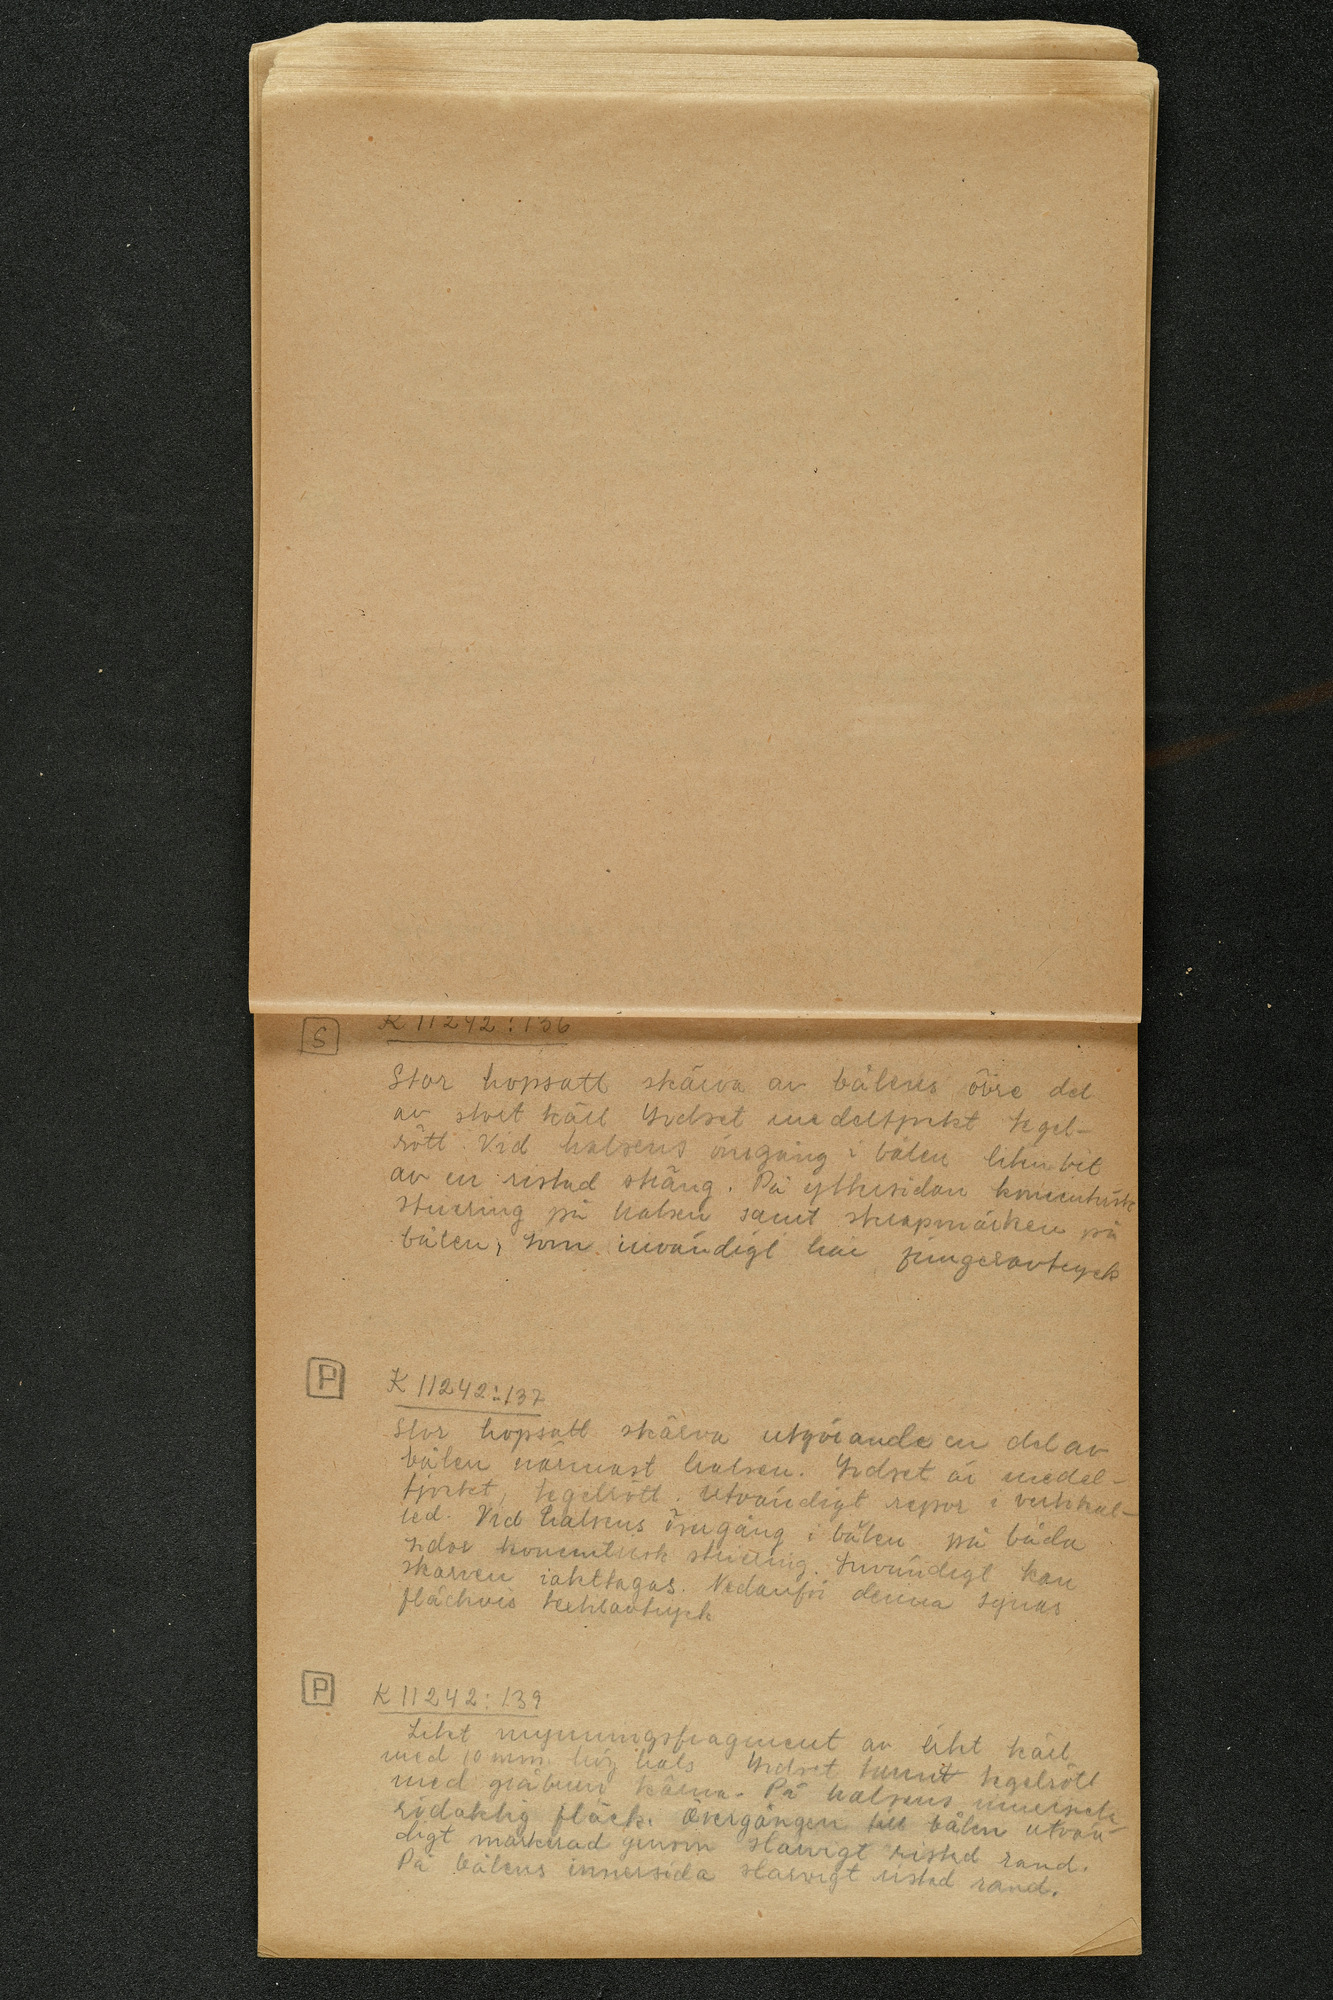 S K 11242:136
Stor hopsatt skärva av bålens övre del
av stort kärl Godset medeltjockt tegel-
rött. Vid halsens övergång i bålen liten bit
av en ristad sträng. På yttersidan koncentrisk
striering på halsen samt skrapmärken på
bålen, som invändigt har fingeravtryck
P K 11242:137
Stor hopsatt skärva utgörande en del av
bålen närmast halsen. Godset är medel-
tjockt, tegelrött. Utvändigt repor i vertikal-
led. Vid halsens övergång i bålen på båda
sidor koncentrisk striering. Invändigt kan
skarven iakttagas. Nedanför denna synas
fläckvis textilavtryck
P K 11242:139
Litet mynningsfragment av litet kärl
med 10 mm hög hals Godset tunnt tegelrött
med gråbrun kärna. På halsens innersida
rödaktig fläck. Övergången till bålen utvän-
digt markerad genom slarvigt ristad rand.
På bålens innersida slarvigt ristad rand.